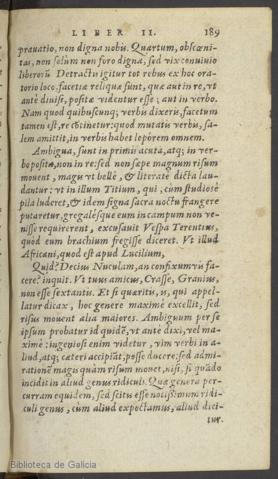 LIBER II. 189
prauatio, non digna nobis. Quartum, obscœni-
tas, non solum non foro digna, sed vix conuiuio
liberorū. Detractis igitur tot rebus ex hoc ora-
torio loco, facetiæ reliquæ sunt, quæ aut in re, vt
antè diuisi, positæ videntur esse: aut in verbo.
Nam quod quibuscunq; verbis dixeris, facetum
tamen est, re cōtinetur: quod mutatis verbis, sa-
lem amittit, in verbis habet leporem omnem.
Ambigua, sunt in primis acuta, atq; in ver-
bo posita, non in re: sed non sæpe magnum risum
mouent, magis vt bellè, & literatè dicta lau-
dantur: vt in illum Titium, qui, cùm studiosè
pila luderet, & idem signa sacra noctu frangere
putaretur, gregalésque eum in campum non ve-
nisse requirerent, excusauit Vespa Terentius,
quòd eum brachium fregisse diceret. Vt illud
Africani, quod est apud Lucilium,
Quid? Decius Nuculam, an confixum vis fa-
cere? inquit. Vt tuus amicus, Crasse, Granius,
non esse sextantis. Et si quæritis, is, qui appel-
latur dicax, hoc genere maximè excellit, sed
risus mouent alia maiores. Ambiguum per se
ipsum probatur id quidē, vt antè dixi, vel ma-
ximè: ingeniosi enim videtur, vim verbi in a-
liud, atq; cæteri accipiāt, posse ducere: sed admi-
rationē magis quàm risum mouet, nisi, si quādo
incidit in aliud genus ridiculi. Quæ genera per-
curram equidem, sed scitis esse notissimum ridi-
culi genus, cùm aliud expectamus, aliud dici-
tur.
Biblioteca de Galicia